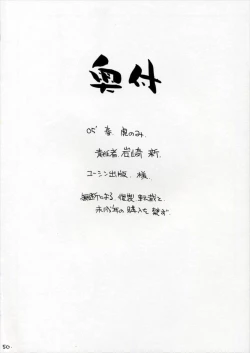 奥付
05' 春. 虎のみ.
責任者. 岩崎 新.
コーシン出版. 様.
無断による 複製. 転載と.
未成年の購入を 禁ず.
50.